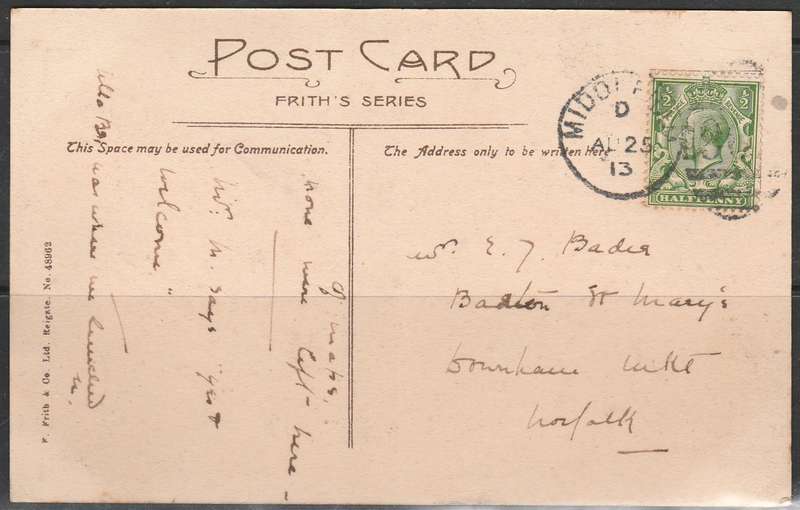 POST CARD
FRITH'S SERIES
This Space may be used for Communication.
The Address only to be written here
MIDDL
D
AU 25
13
½ ½
HALFPENNY
Mr. E. J. Bader
Barton St Mary's
Downham Mkt
Norfolk
of maps,
none were left - here -
Mr. M. says
welcome"
was where we lunched
F. Frith & Co. Ltd. Reigate. No. 48962